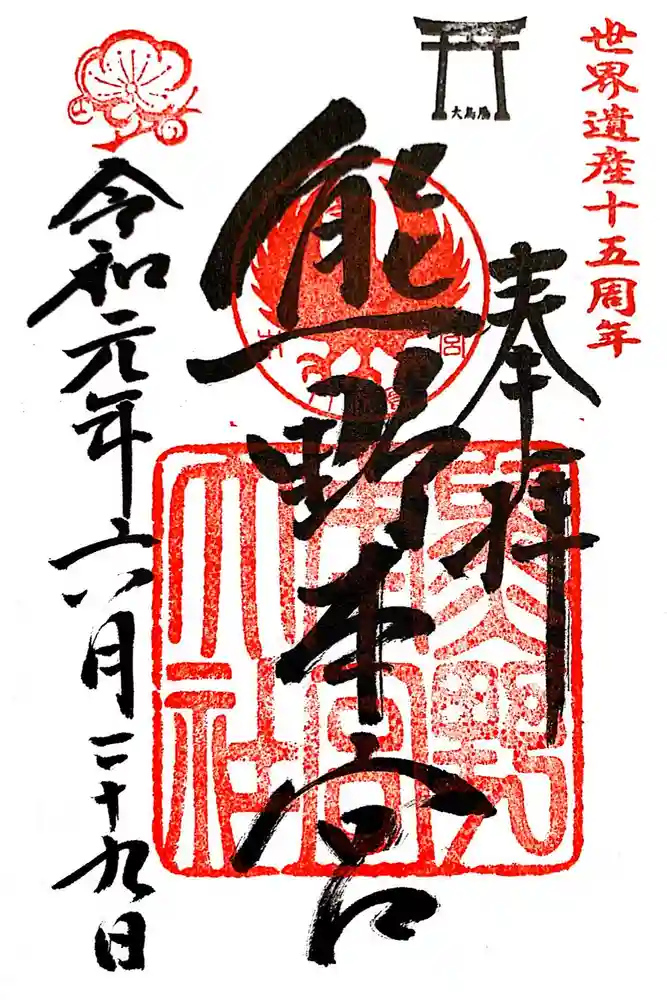 世界遺産十五周年
奉拝
大鳥居
熊野本宮
熊野本宮大社
令和元年六月二十九日